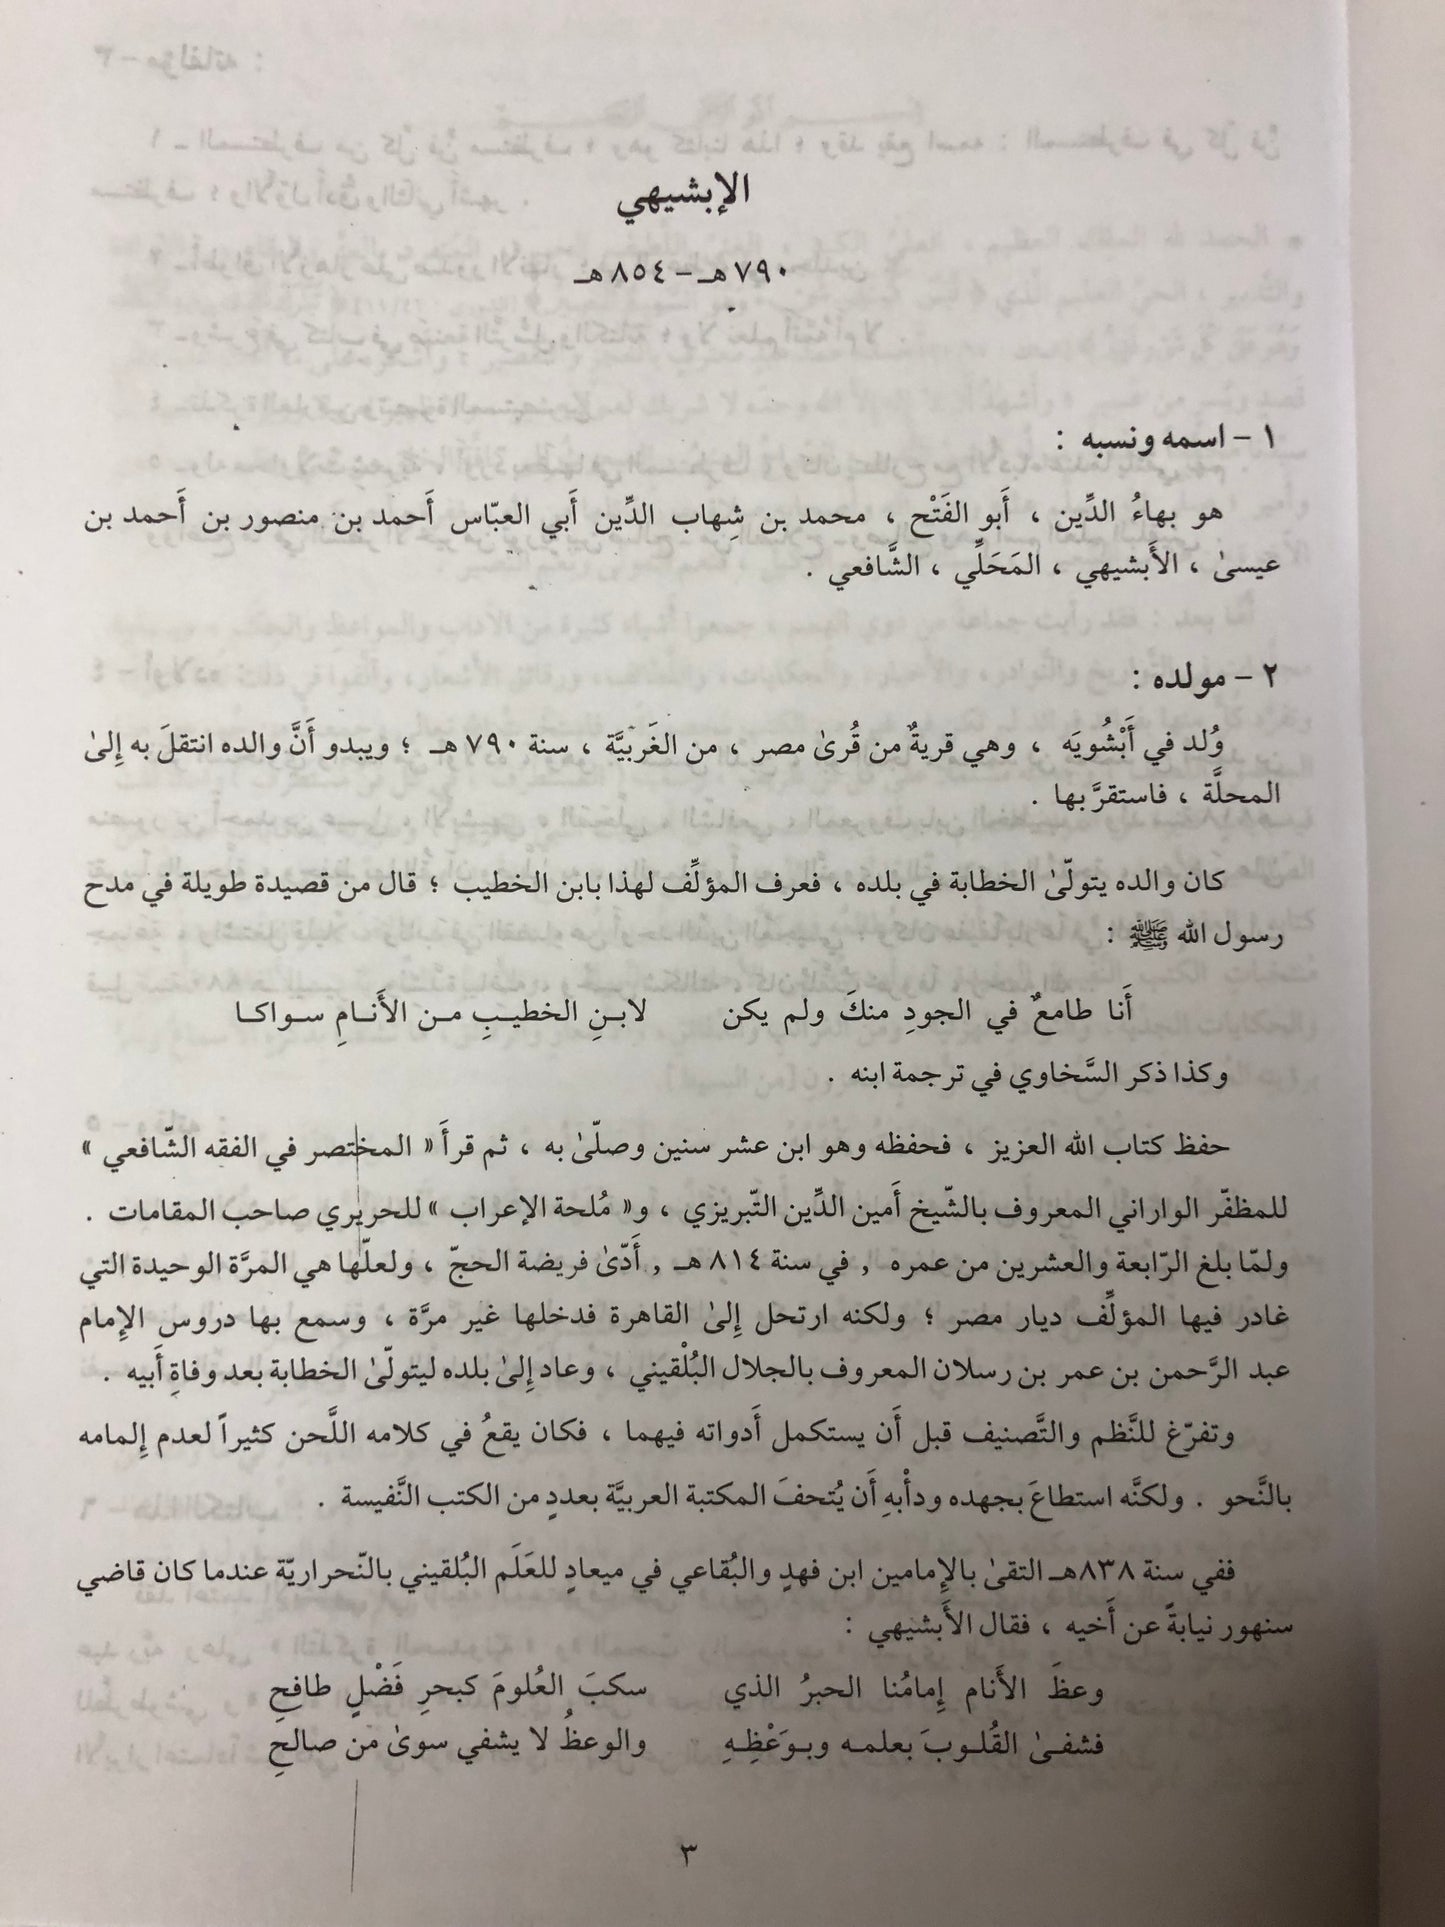 الإبشيهي
٧٩٠ هـ – ٨٥٤ هـ
١ – اسمه ونسبه :
هو بهاءُ الدِّين ، أَبو الفَتْح ، محمد بن شِهاب الدِّين أَبي العبّاس أَحمد بن منصور بن أَحمد بن
عيسىٰ ، الأَبشيهي ، المَحَلِّي ، الشَّافعي .
٢ – مولده :
وُلد في أَبْشُويَه ، وهي قريةٌ من قُرىٰ مصر ، من الغَربيَّة ، سنة ٧٩٠ هـ ؛ ويبدو أَنَّ والده انتقلَ به إِلىٰ
المحلَّة ، فاستقرَّ بها .
كان والده يتولّىٰ الخطابة في بلده ، فعرف المؤلِّف لهذا بابن الخطيب ؛ قال من قصيدة طويلة في مدح
رسول الله ﷺ :
أَنا طامعٌ في الجودِ منكَ ولم يكن لابـنِ الخطيـبِ مـن الأَنـامِ سـواكـا
وكذا ذكر السَّخاوي في ترجمة ابنه .
حفظ كتاب الله العزيز ، فحفظه وهو ابن عشر سنين وصلّىٰ به ، ثم قرأَ « المختصر في الفقه الشّافعي »
للمظفّر الواراني المعروف بالشّيخ أَمين الدِّين التّبريزي ، و« مُلحة الإعراب » للحريري صاحب المقامات .
ولمّا بلغ الرّابعة والعشرين من عمره , في سنة ٨١٤ هـ , أَدّىٰ فريضة الحجّ ، ولعلّها هي المرَّة الوحيدة التي
غادر فيها المؤلِّف ديار مصر ؛ ولكنه ارتحل إِلىٰ القاهرة فدخلها غير مرَّة ، وسمع بها دروس الإِمام
عبد الرَّحمن بن عمر بن رسلان المعروف بالجلال البُلْقيني ، وعاد إِلىٰ بلده ليتولّىٰ الخطابة بعد وفاةِ أَبيه .
وتفرّغ للنَّظم والتَّصنيف قبل أَن يستكمل أَدواته فيهما ، فكان يقعُ في كلامه اللَّحن كثيراً لعدم إِلمامه
بالنَّحو . ولكنَّه استطاعَ بجهده ودأْبهِ أَن يُتحفَ المكتبة العربيَّة بعددٍ من الكتب النَّفيسة .
ففي سنة ٨٣٨هـ التقىٰ بالإِمامين ابن فهدٍ والبُقاعي في ميعادٍ للعَلَم البُلقيني بالنّحراريّة عندما كان قاضي
سنهور نيابةً عن أَخيه ، فقال الأَبشيهي :
وعظَ الأَنام إِمامُنا الحبرُ الذي سكبَ العُلومَ كبحرِ فَضْلٍ طافحِ
فشفـىٰ القُلـوبَ بعلمـه وبـوَعْظِـهِ والوعظُ لا يشفي سوىٰ من صالحِ
٣